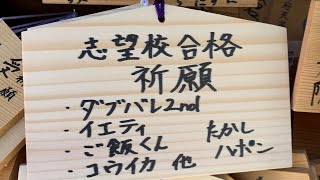 志望校合格
祈願
・ダブバレ2nd
・イエティ たかし
・ご飯くん ハポン
・コウイカ 他